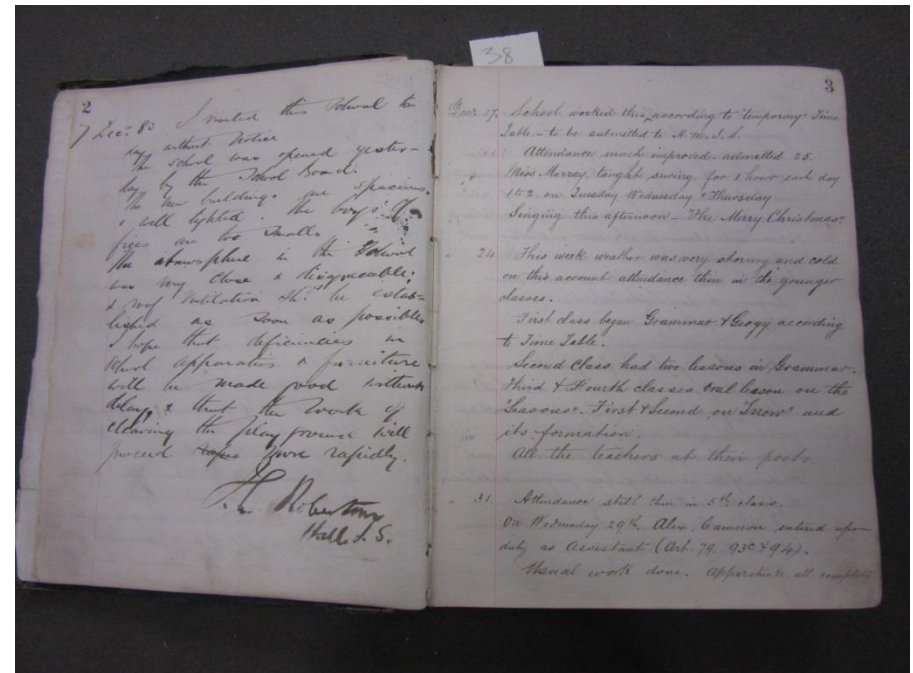 38
2
7 Dec. 80 I visited this School to
day without Notice
The School was opened yester-
day by the School Board.
The new buildings are spacious
& well lighted. The boys' of-
fices are too small.
The atmosphere in the School
was very close & disagreeable;
& roof ventilation shd. be estab-
lished as soon as possible
I hope that deficiencies in
School apparatus & furniture
will be made good without
delay, & that the work of
clearing the playground will
proceed more rapidly.
Robertson
H.M.I.S.
3
Decr. 17. School worked this according to "temporary" Time
Table - to be submitted to H. M. I. S.
Attendance much improved - admitted 25.
Miss Murray taught sewing for 1 hour each day
1 to 2 on Tuesday Wednesday & Thursday
Singing this afternoon - "The Merry Christmas"
" 24 This week weather was very stormy and cold
on this account attendance thin in the younger
classes.
First class began Grammar & Geogy according
to Time Table.
Second Class had two lessons in Grammar.
Third & Fourth classes Oral lesson on the
"Seasons". First & Second on "Snow" and
its formation.
All the teachers at their posts.
" 31. Attendance still thin in 5th class.
On Wednesday 29th Alex. Cameron entered upon
duty as Assistant (Art. 79. 93c & 94).
Usual work done. Apparatus all complete